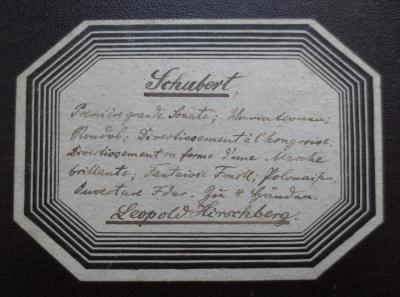 Schubert,
Première grande Sonate; Variationen;
Rondos; Divertissement à l'hongroise;
Divertissement en forme d'une Marche
brillante; Fantaisie Fmoll; Polonaisen
Ouverture Fdur. Zu 4 Händen.
Leopold Hirschberg.